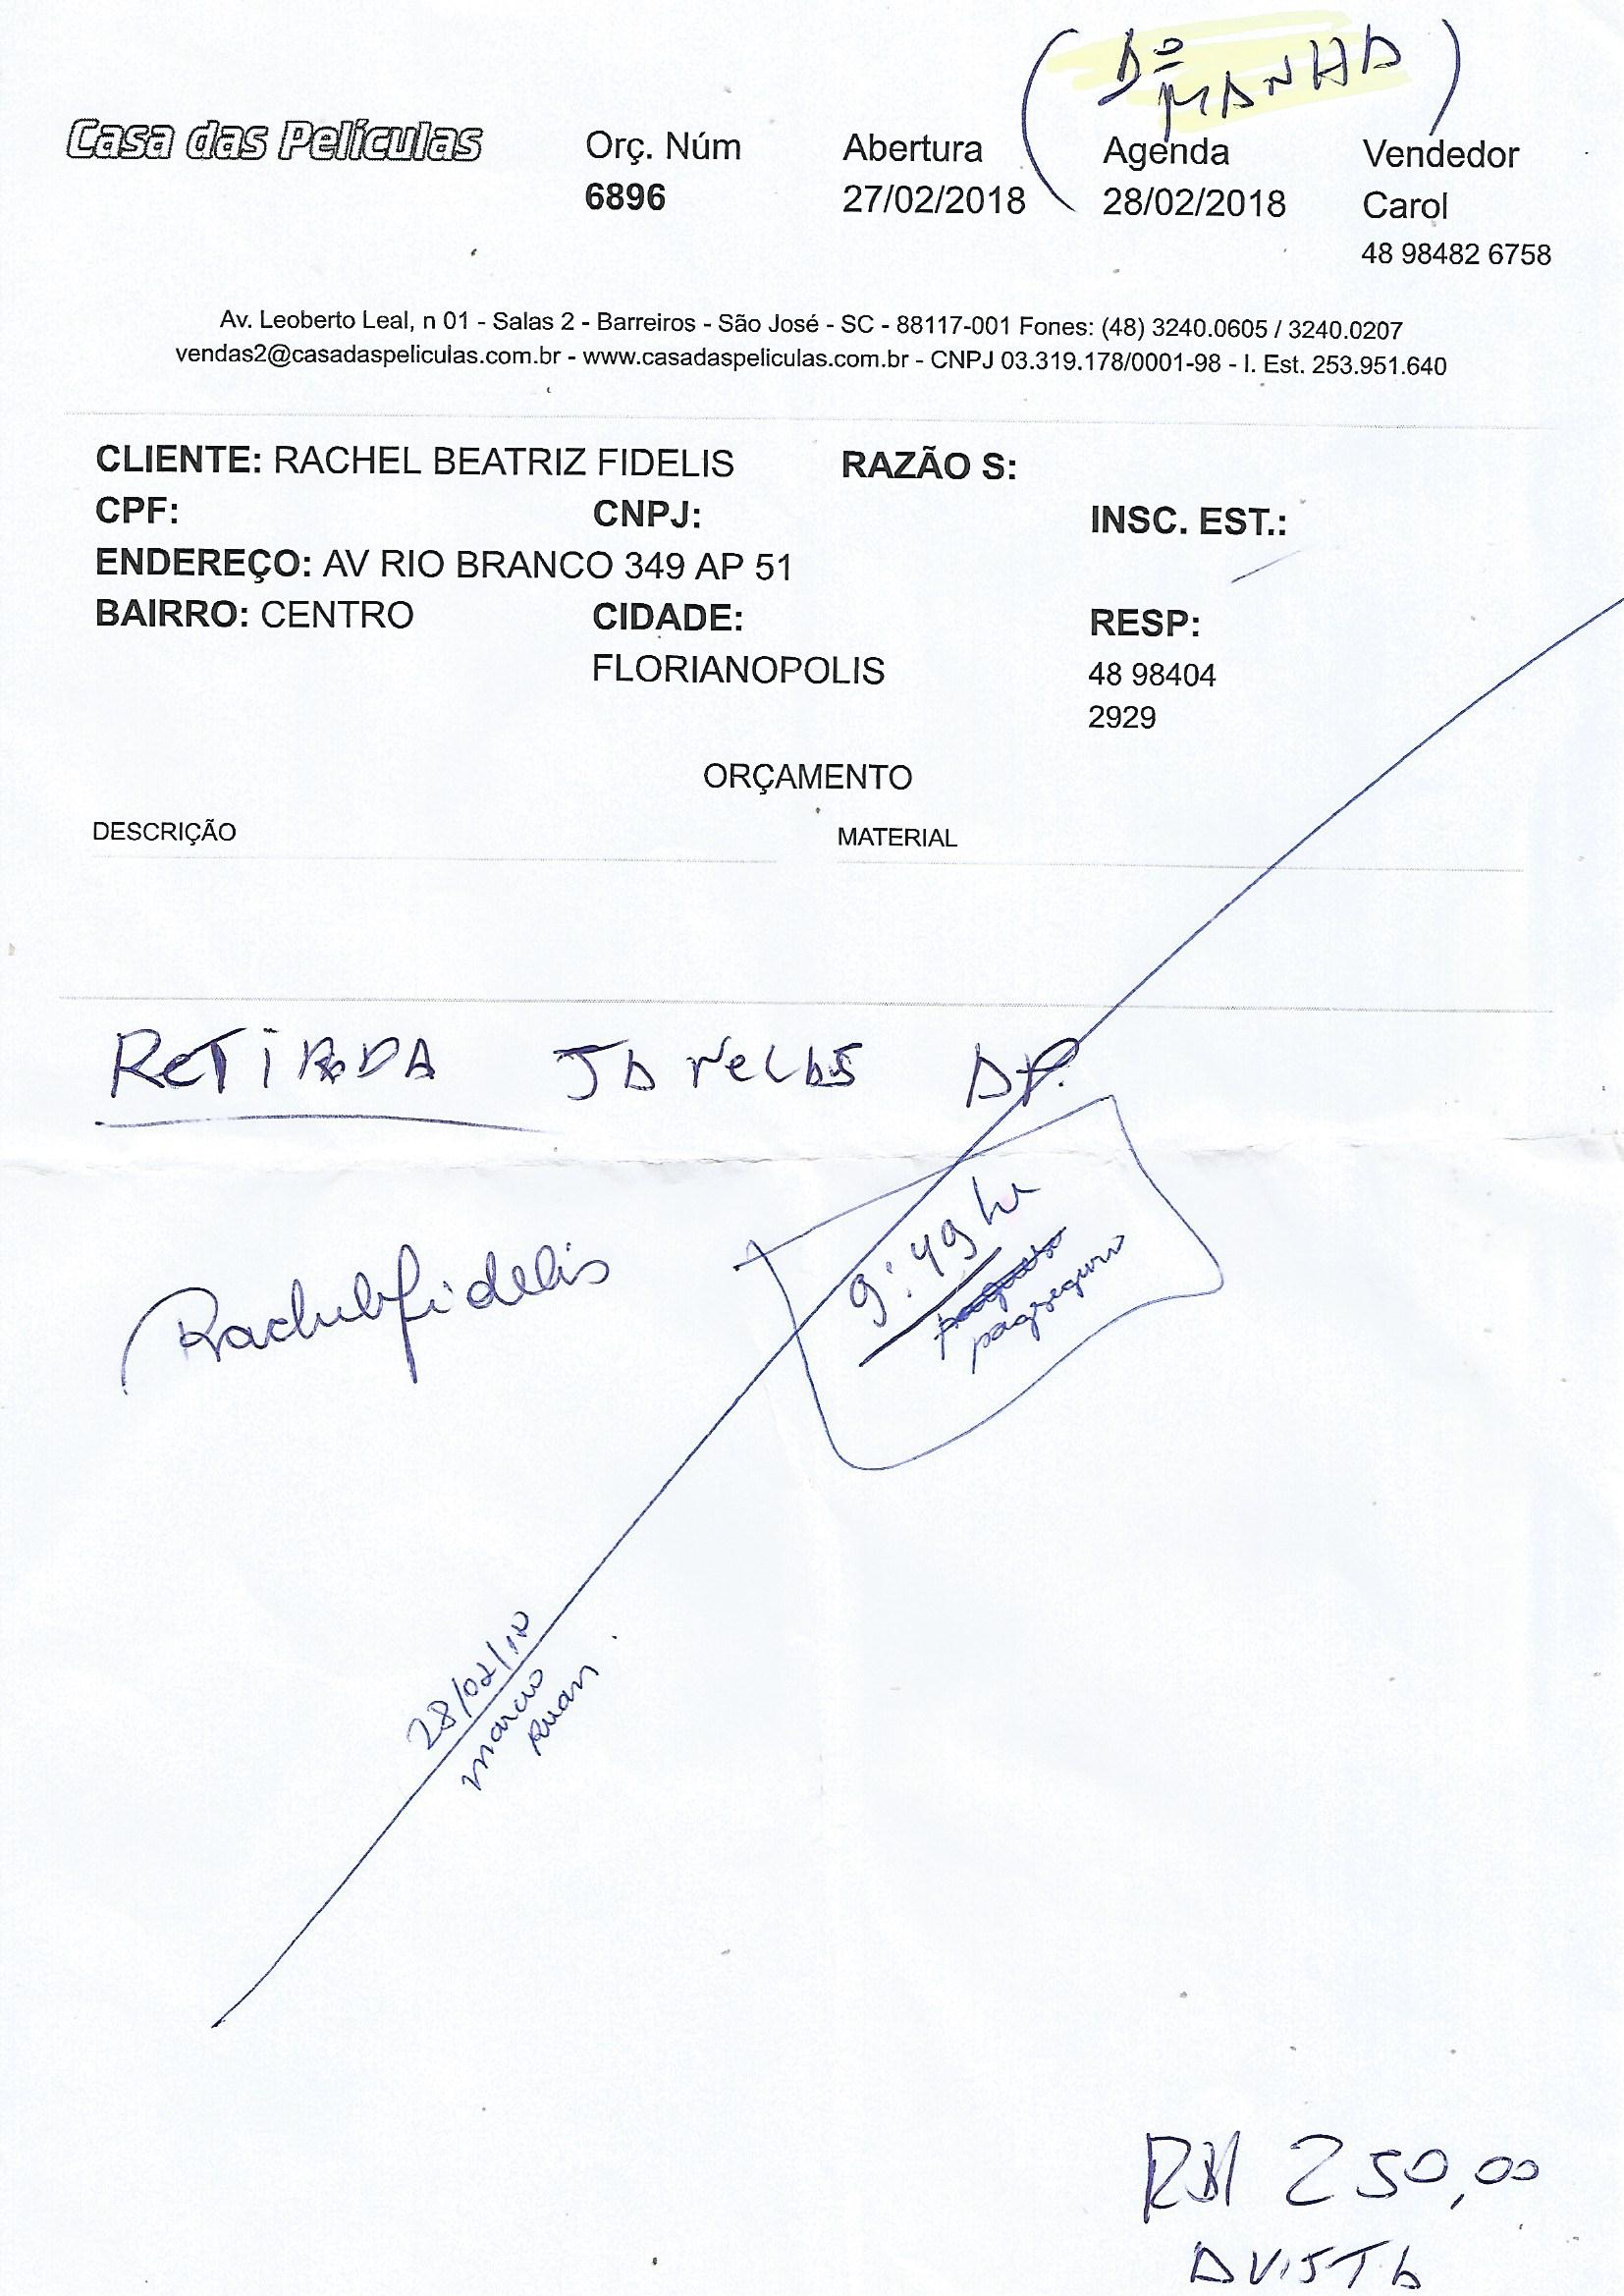 (1º MANHÃ)
Casa das Películas
Orç. Núm
6896
Abertura
27/02/2018
Agenda
28/02/2018
Vendedor
Carol
48 98482 6758
Av. Leoberto Leal, n 01 - Salas 2 - Barreiros - São José - SC - 88117-001 Fones: (48) 3240.0605 / 3240.0207
vendas2@casadaspeliculas.com.br - www.casadaspeliculas.com.br - CNPJ 03.319.178/0001-98 - I. Est. 253.951.640
CLIENTE: RACHEL BEATRIZ FIDELIS RAZÃO S:
CPF: CNPJ: INSC. EST.:
ENDEREÇO: AV RIO BRANCO 349 AP 51
BAIRRO: CENTRO CIDADE: RESP:
FLORIANOPOLIS 48 98404
2929
ORÇAMENTO
DESCRIÇÃO MATERIAL
RETIRADA JANELAS AP.
Rachel Fidelis
9:49 hr
pagseguro
28/02/18
Marcio
Ruan
R$ 250,00
AVISTA